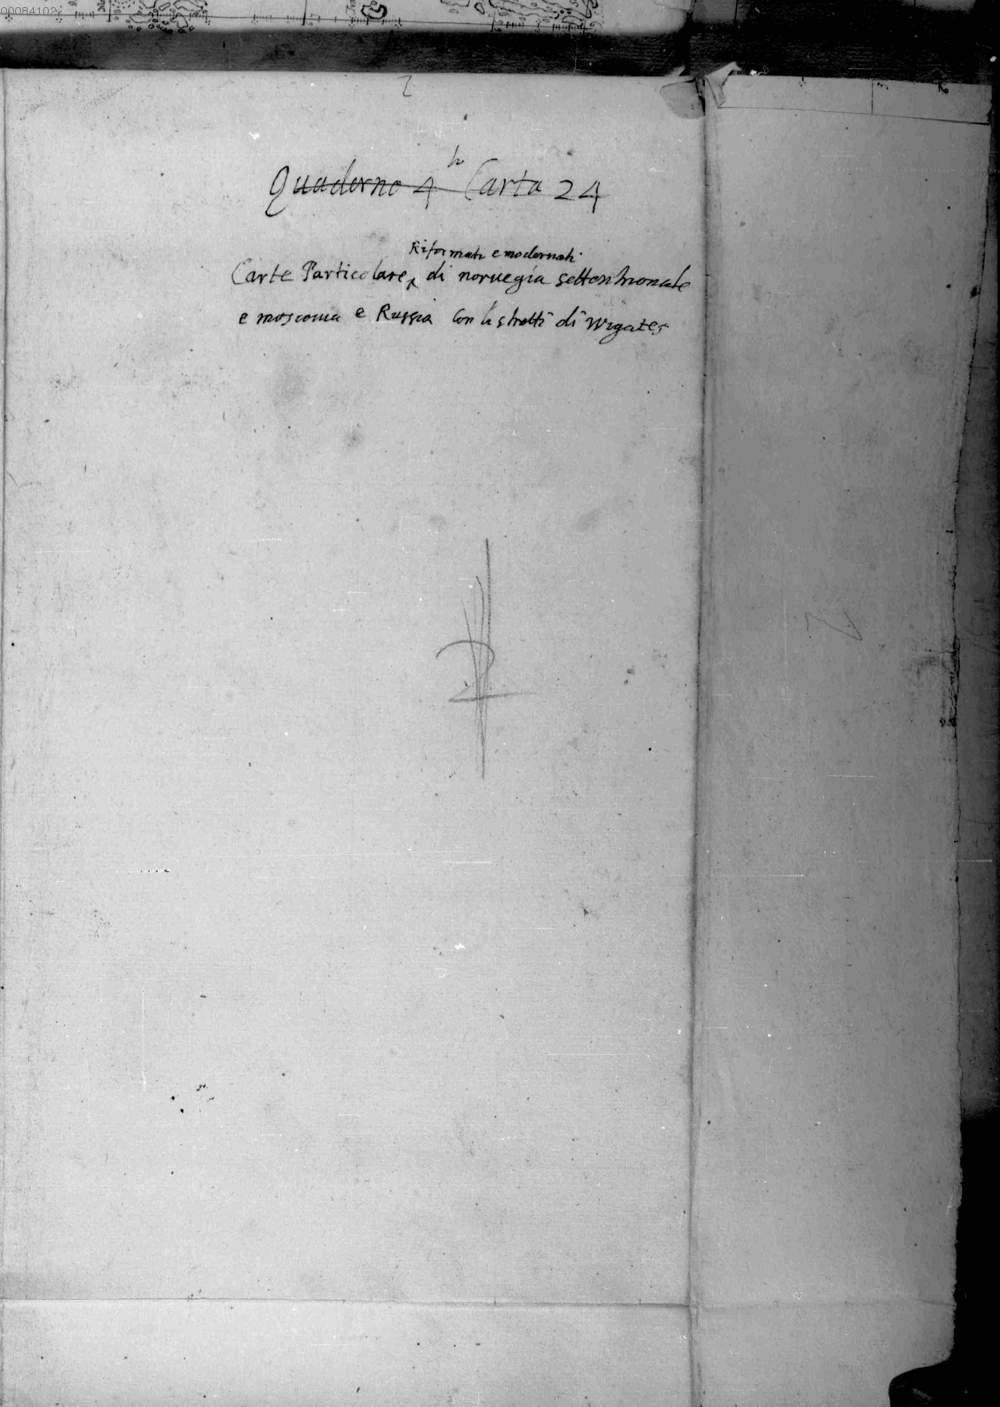 00084102
Quaderno 4to Carta 24
Riformati e modernati
Carte Particolare di noruegia settentrionale
e moscouia e Russia con li stretti di Wygates